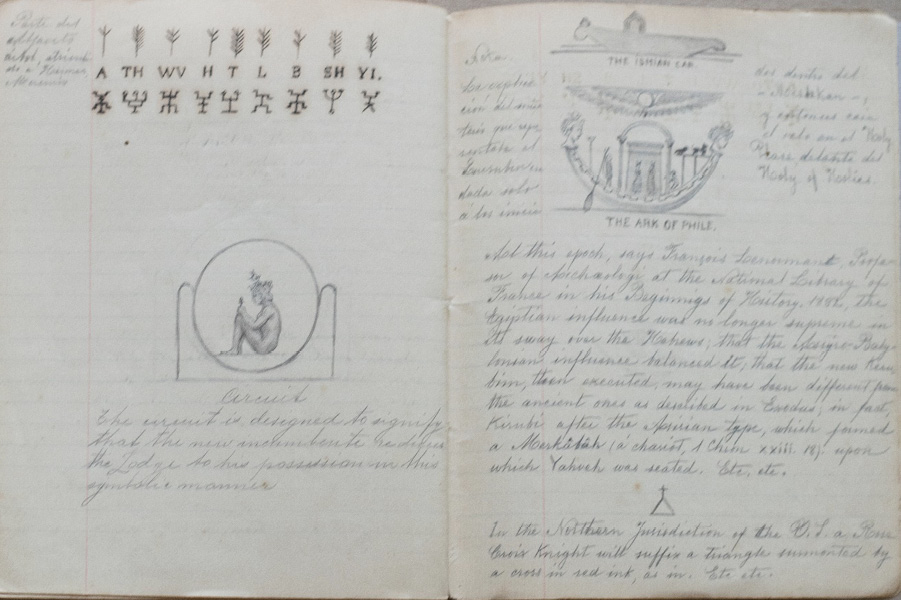 Parte del
alfabeto
A TH WV H T L B SH YI.
Circuit
The circuit is designed to signify,
that the new incumbent reduces
the Lodge to his possession in this
symbolic manner
Nota.
sentaba el
dada solo
á los inicia
THE ISHIAN CAR.
THE ARK OF PHILE.
dos dentro del
- Mishkan -,
y entonces caía
el velo en el Holy
Place, delante del
Holy of Holies.
At this epoch, says François Lenormant, Profe-
sor of Archæologi at the National Library of
France in his Beginnings of History, 1882, the
Egyptian influence was no longer supreme in
its sway over the Hebrews; that the Assyro-Baby-
lonian influence balanced it; that the new Keru-
bim, then executed, may have been different from
the ancient ones as described in Exodus; in fact,
Kirubi after the Assyrian type, which formed
a Merkābāh (a chariot, 1 Chron xxiii. 18). upon
which Yahveh was seated. Etc. etc.
In the Northern Jurisdiction of the U.S. a Rose
Croix Knight will suffix a triangle surmounted by
a cross in red ink, as in. Etc etc.